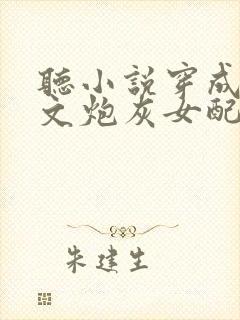 聽小說穿成
文炮灰女配
朱建生